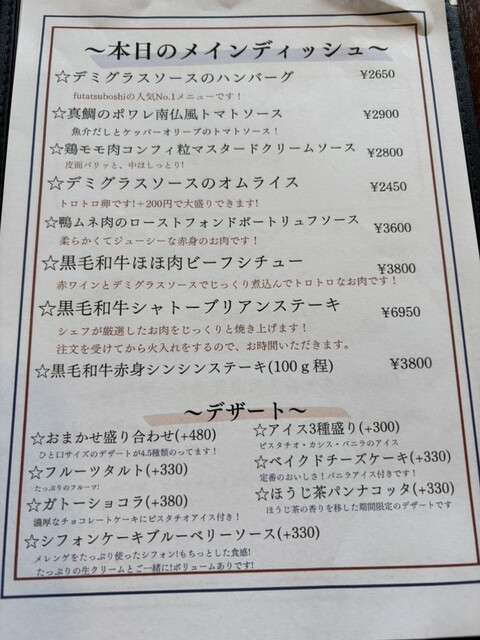 〜本日のメインディッシュ〜
☆デミグラスソースのハンバーグ ¥2650
futatsuboshiの人気No.1メニューです！
☆真鯛のポワレ南仏風トマトソース ¥2900
魚介だしとケッパーオリーブのトマトソース！
☆鶏モモ肉コンフィ粒マスタードクリームソース ¥2800
皮面パリッと、中はしっとり!
☆デミグラスソースのオムライス ¥2450
トロトロ卵です!＋200円で大盛りできます!
☆鴨ムネ肉のローストフォンドボートリュフソース ¥3600
柔らかくてジューシーな赤身のお肉です！
☆黒毛和牛ほほ肉ビーフシチュー ¥3800
赤ワインとデミグラスソースでじっくり煮込んでトロトロなお肉です！
☆黒毛和牛シャトーブリアンステーキ ¥6950
シェフが厳選したお肉をじっくりと焼き上げます！
注文を受けてから火入れをするので、お時間いただきます。
☆黒毛和牛赤身シンシンステーキ(100ｇ程) ¥3800
〜デザート〜
☆おまかせ盛り合わせ(+480)
ひと口サイズのデザートが4.5種類のってます！
☆フルーツタルト(+330)
たっぷりのフルーツ!
☆ガトーショコラ(+380)
濃厚なチョコレートケーキにピスタチオアイス付き！
☆シフォンケーキブルーベリーソース(+330)
メレンゲをたっぷり使ったシフォン!もちっとした食感!
たっぷりの生クリームとご一緒に!ボリュームありです!
☆アイス3種盛り(+300)
ピスタチオ・カシス・バニラのアイス
☆ベイクドチーズケーキ(+330)
定番のおいしさ！バニラアイス付きです！
☆ほうじ茶パンナコッタ(+330)
ほうじ茶の香りを移した期間限定のデザートです